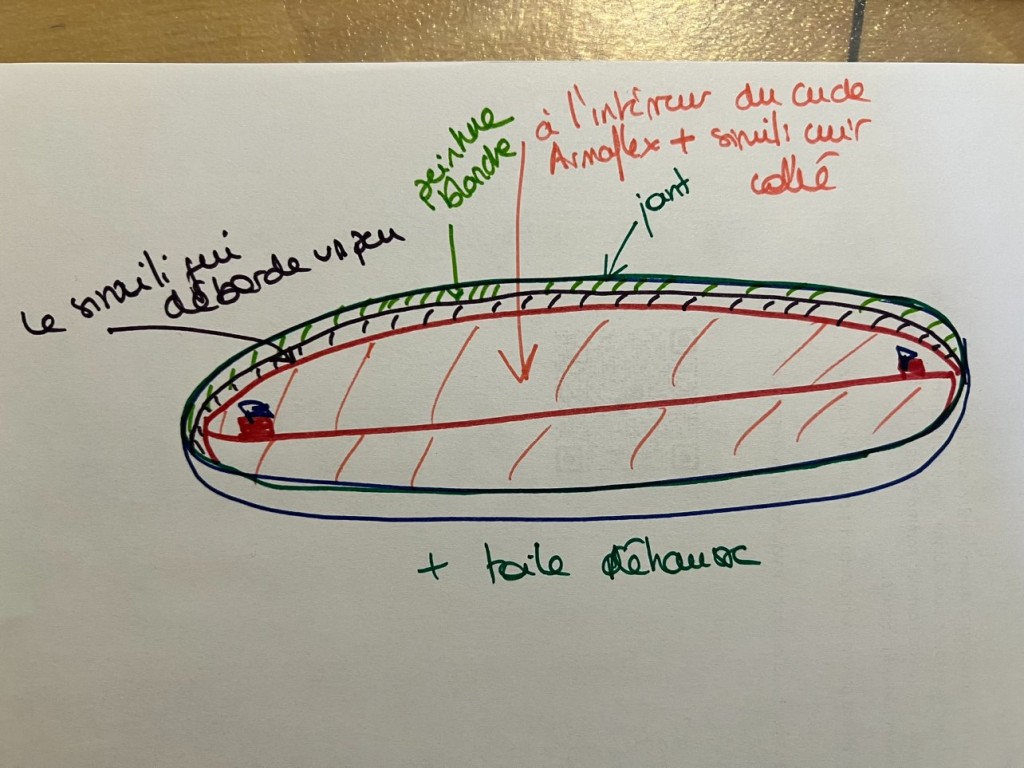 peinture
blanche
à l'intérieur du cude
Armaflex + simili cuir
collé
joint
le simili qui
déborde un peu
+ toile